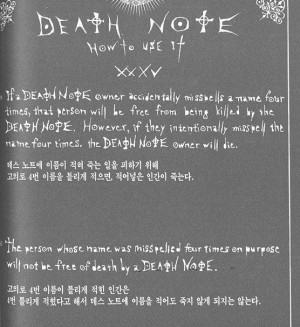 DEATH NOTE
HOW to USE It
XXXV
If a DEATH NOTE owner accidentally misspells a name four
times, that person will be free from being killed by the
DEATH NOTE. However, if they intentionally misspell the
name four times, the DEATH NOTE owner will die.
데스 노트에 이름이 적혀 죽는 일을 피하기 위해
고의로 4번 이름을 틀리게 적으면, 적어넣은 인간이 죽는다.
The person whose name was misspelled four times on purpose
will not be free of death by a DEATH NOTE.
고의로 4번 이름이 틀리게 적힌 인간은
4번 틀리게 적혔다고 해서 데스 노트에 이름을 적어도 죽지 않게 되지는 않는다.